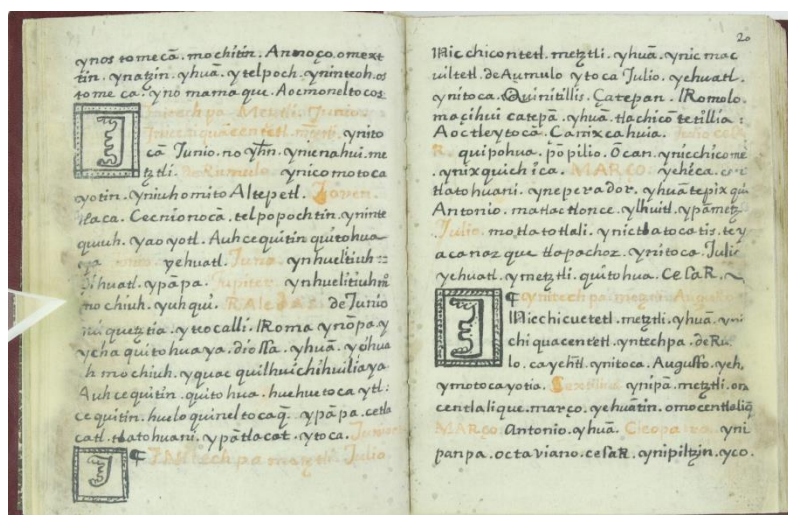 ynos tomecā. mochitin. Annoço. omext
tin. ynatzin. yhuā. ytelpoch. yninteoh. os
tome ca. yno mamaque. Aocmoneltocos
Initechpa Metztli. Junio.
Inic chiquacentetl. metztli. ynito
cā Junio. no yhn. ynic nahui. me
tztli. de Rumulo ynicomotoca
yotin. yniuh omito Altepetl. Joven.
tlaca. Cecnionocā. telpopochtin. yninte
quiuh. yaoyotl. Auh cequitin quitohua
ya yehuatl. Juno. ynhuelitiuh
çihuatl. ypāpa. Jupiter. ynhuelitiuh
mochiuh. yuhqui. RAledas de Junio
quequetztia. yteocalli. Roma ynōpa. y
ycha quitohuaya. diossa. yhuā. yōhua
h mochiuh. yquac quilhuichihuiliaya
Auh cequitin. quitohua. huehuetoca ytl:
cequitin. huelo quineltocaq̄. ypāpa. cetla
catl. tlatohuani. ypātlacat. ytoca.
INitechpa metztli. Julio
20
INic chicontetl. metztli. yhuā. ynic mac
uiltetl. de Aumulo ytoca Julio. yehuatl.
ynitoca. Quinitillis. Çatepan. IRomolo.
maçihui catepā. yhuā. tlachicōtetillia:
Aoctleytocā. Canixcahuia. Julio cesa
R. quipohua. pōpilio. Ōcan. ynicchicome
ynixquichica. MARÇO. yehica.
tlatohuani. ynēperador. yhuātepixqui
Antonio. matlactlonce. ylhuitl. ypāmetz
Julio. motlatotlali. ynictlatocatis. tey
acanaz que tlapachoz. ynitoca. Julio
yehuatl. ymetztli. quitohua. CesaR.
ynitechpa metztli Augusto
INicchicuetetl. metztli. yhuā. yni
chiquacentetl. yntechpa. deRu
lo. cayehtl. ynitoca. Augusto. yeh,
ymotocayotia. Sextillia ynipā. metztli. on
centlalique. março. yehuātin. omocentlaliq̄
MARÇO. Antonio. yhuā. Cleopatra. yni
panpa. octaviano. cesaR. ynipiltzin. yco.